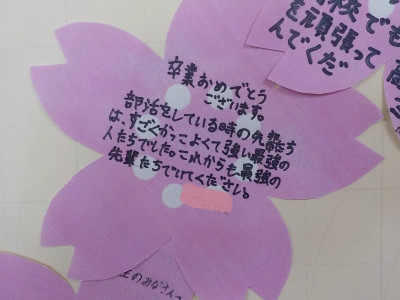 卒業おめでとう
ございます。
部活をしている時の先輩たち
は、すごくかっこよくて強い最強の
人たちでした。これからも最強の
先輩たちでいてください。
校でも
を頑張って
んでくだ
生のみなさんへ